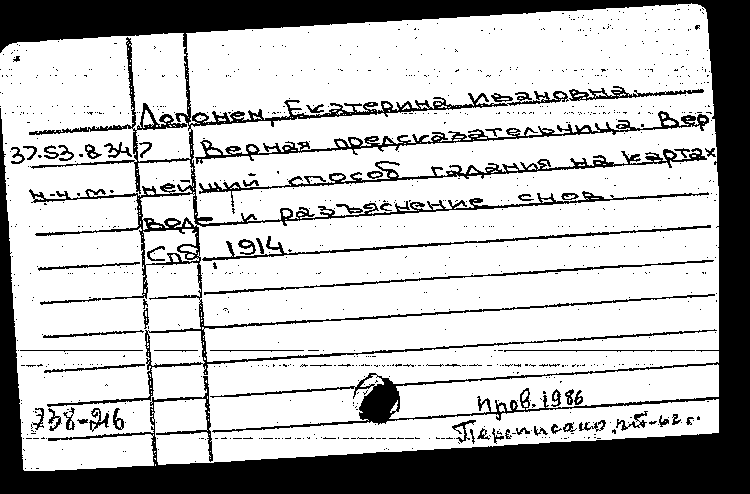 Лопонен, Екатерина Ивановна.
37.53.8.347 Верная предсказательница. Вер-
н.н.т. нейший способ гадания на картах
воде и разъяснение снов.
Спб, 1914.
238-216
Пров. 1986
Переписано